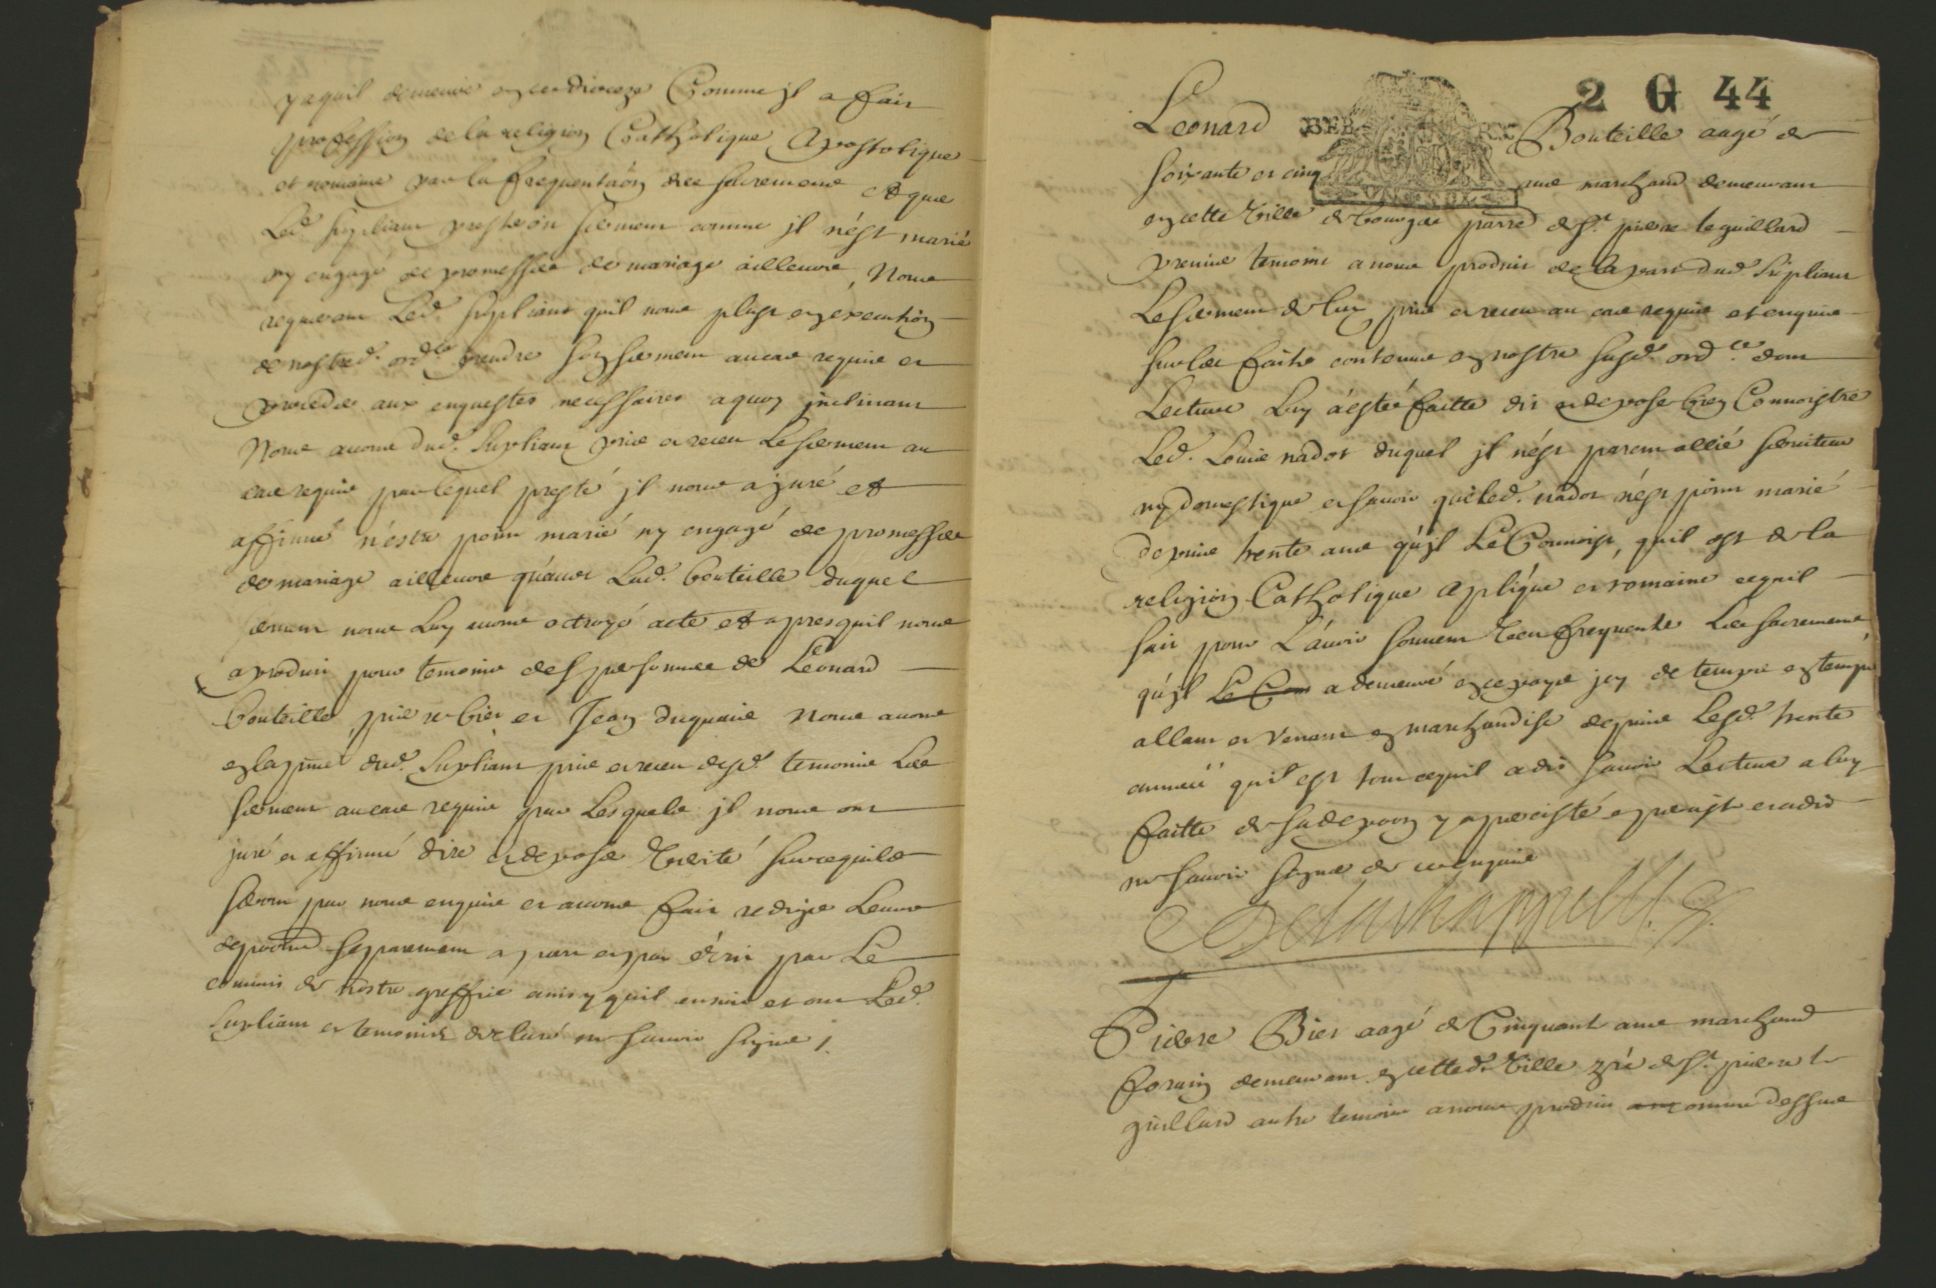 y a quil demeure en ce dioceze Comme jl a fait
profession de la religion Catholique Apostolique
et romaine par la frequenta͞on des sacremens et que
Led. supliant preste son serment comme jl nést marié
ny engagé de promesses de mariage ailleurs, Nous
requerant Led. supliant quil nous plaise en execution
de nostred. ordce prendre son serment au cas requis et
proceder aux enquestes necessaires a quoy jnclinant
Nous auons dud. supliant pris et receu Le serment au
cas requis par lequel presté jl nous a juré et
affirmé n'estre point marié ny engagé de promesses
de mariage ailleurs qu'auec Lad. bouteille duquel
serment nous Luy auons octroyé acte et apres quil nous
a produit pour temoins des personnes de Léonard
bouteille, pierre bier et Jean duquaire Nous auons
en la pnce dud. Supliant pris et receu desd. temoins Les
serment au cas requis par Lesquels jl nous ont
juré et affirmé dire et deposer Verité sur ce quils
seront par nous enquis et auons fait rediger Leurs
depo͞ons separement a part et par écrit par Le
commis de nostre greffe ainsy quil ensuit et ont Led.
supliant et temoins declaré ne sauoir signer /.
2 G 44
Leonard Bouteille aagé de
soixante et cinq ans marchand demeurant
en cette Ville de bourges parre de St. pierre le guillard
premier temoins a nous produit de la part dud. Supliant
Le serment de luy pris et receu au cas requis et enquis
sur les faits contenus en nostre susd. ordce. dont
Lecture Luy a esté faitte dit et depose bien Connoistre
Led. Louis nadot duquel jl nést parent allié seruiteur
ny domestique et sauoir que led. nadot nést point marié
depuis trente ans qu'jl Le Connoist, quil est de la
religion Catholique Aplique et romaine ce quil
sait pour L'auoir souuent Veu frequenter Les sacremens,
qu'jl Le Con a demeuré en ce pays jcy de temps en temps
allant et Venant en marchandise depuis Lesd. trente
années qui est tout ce quil a dit sauoir Lecture a luy
faitte de sa depo͞on y a percisté et a dit
ne sauoir signer de ce enquis
Pierre Bier aagé de Cinquant ans marchand
forain demeurant en cetted. Ville pre de St. pierre le
guillard autre temoins a nous produit comme dessus